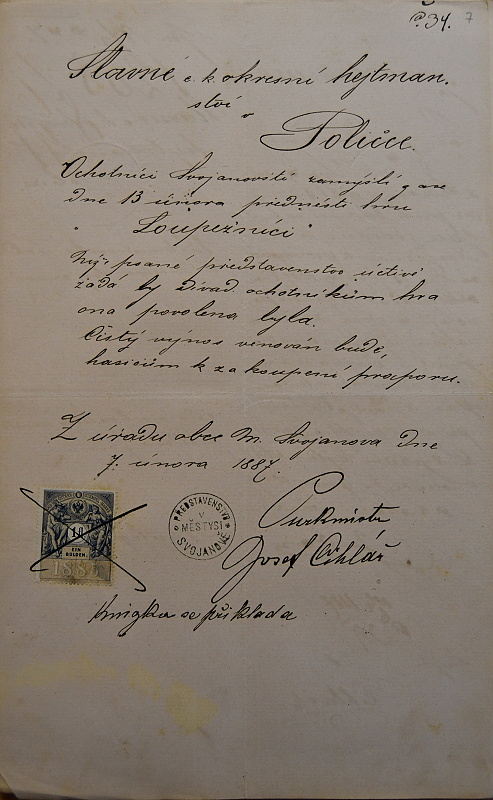 č. 34. 7
Slavné c k. okresní hejtman.
ství v
Poličce.
Ochotníci Svojanovští zamýšlí
dne 13 února přednésti hru
„Loupežníci"
Níže psané představenstvo uctivě
žádá by divad. ochotníkům hra
ona povolena byla.
Čistý výnos věnován bude,
hasičům k zakoupení praporu.
Z úřadu obce M. Svojanova dne
7. února 1887.
PŘEDSTAVENSTVO
V
MĚSTYSI
SVOJANOVĚ
Purkmistr
Josef Cihlář
EIN
GULDEN.
knížka se přikládá